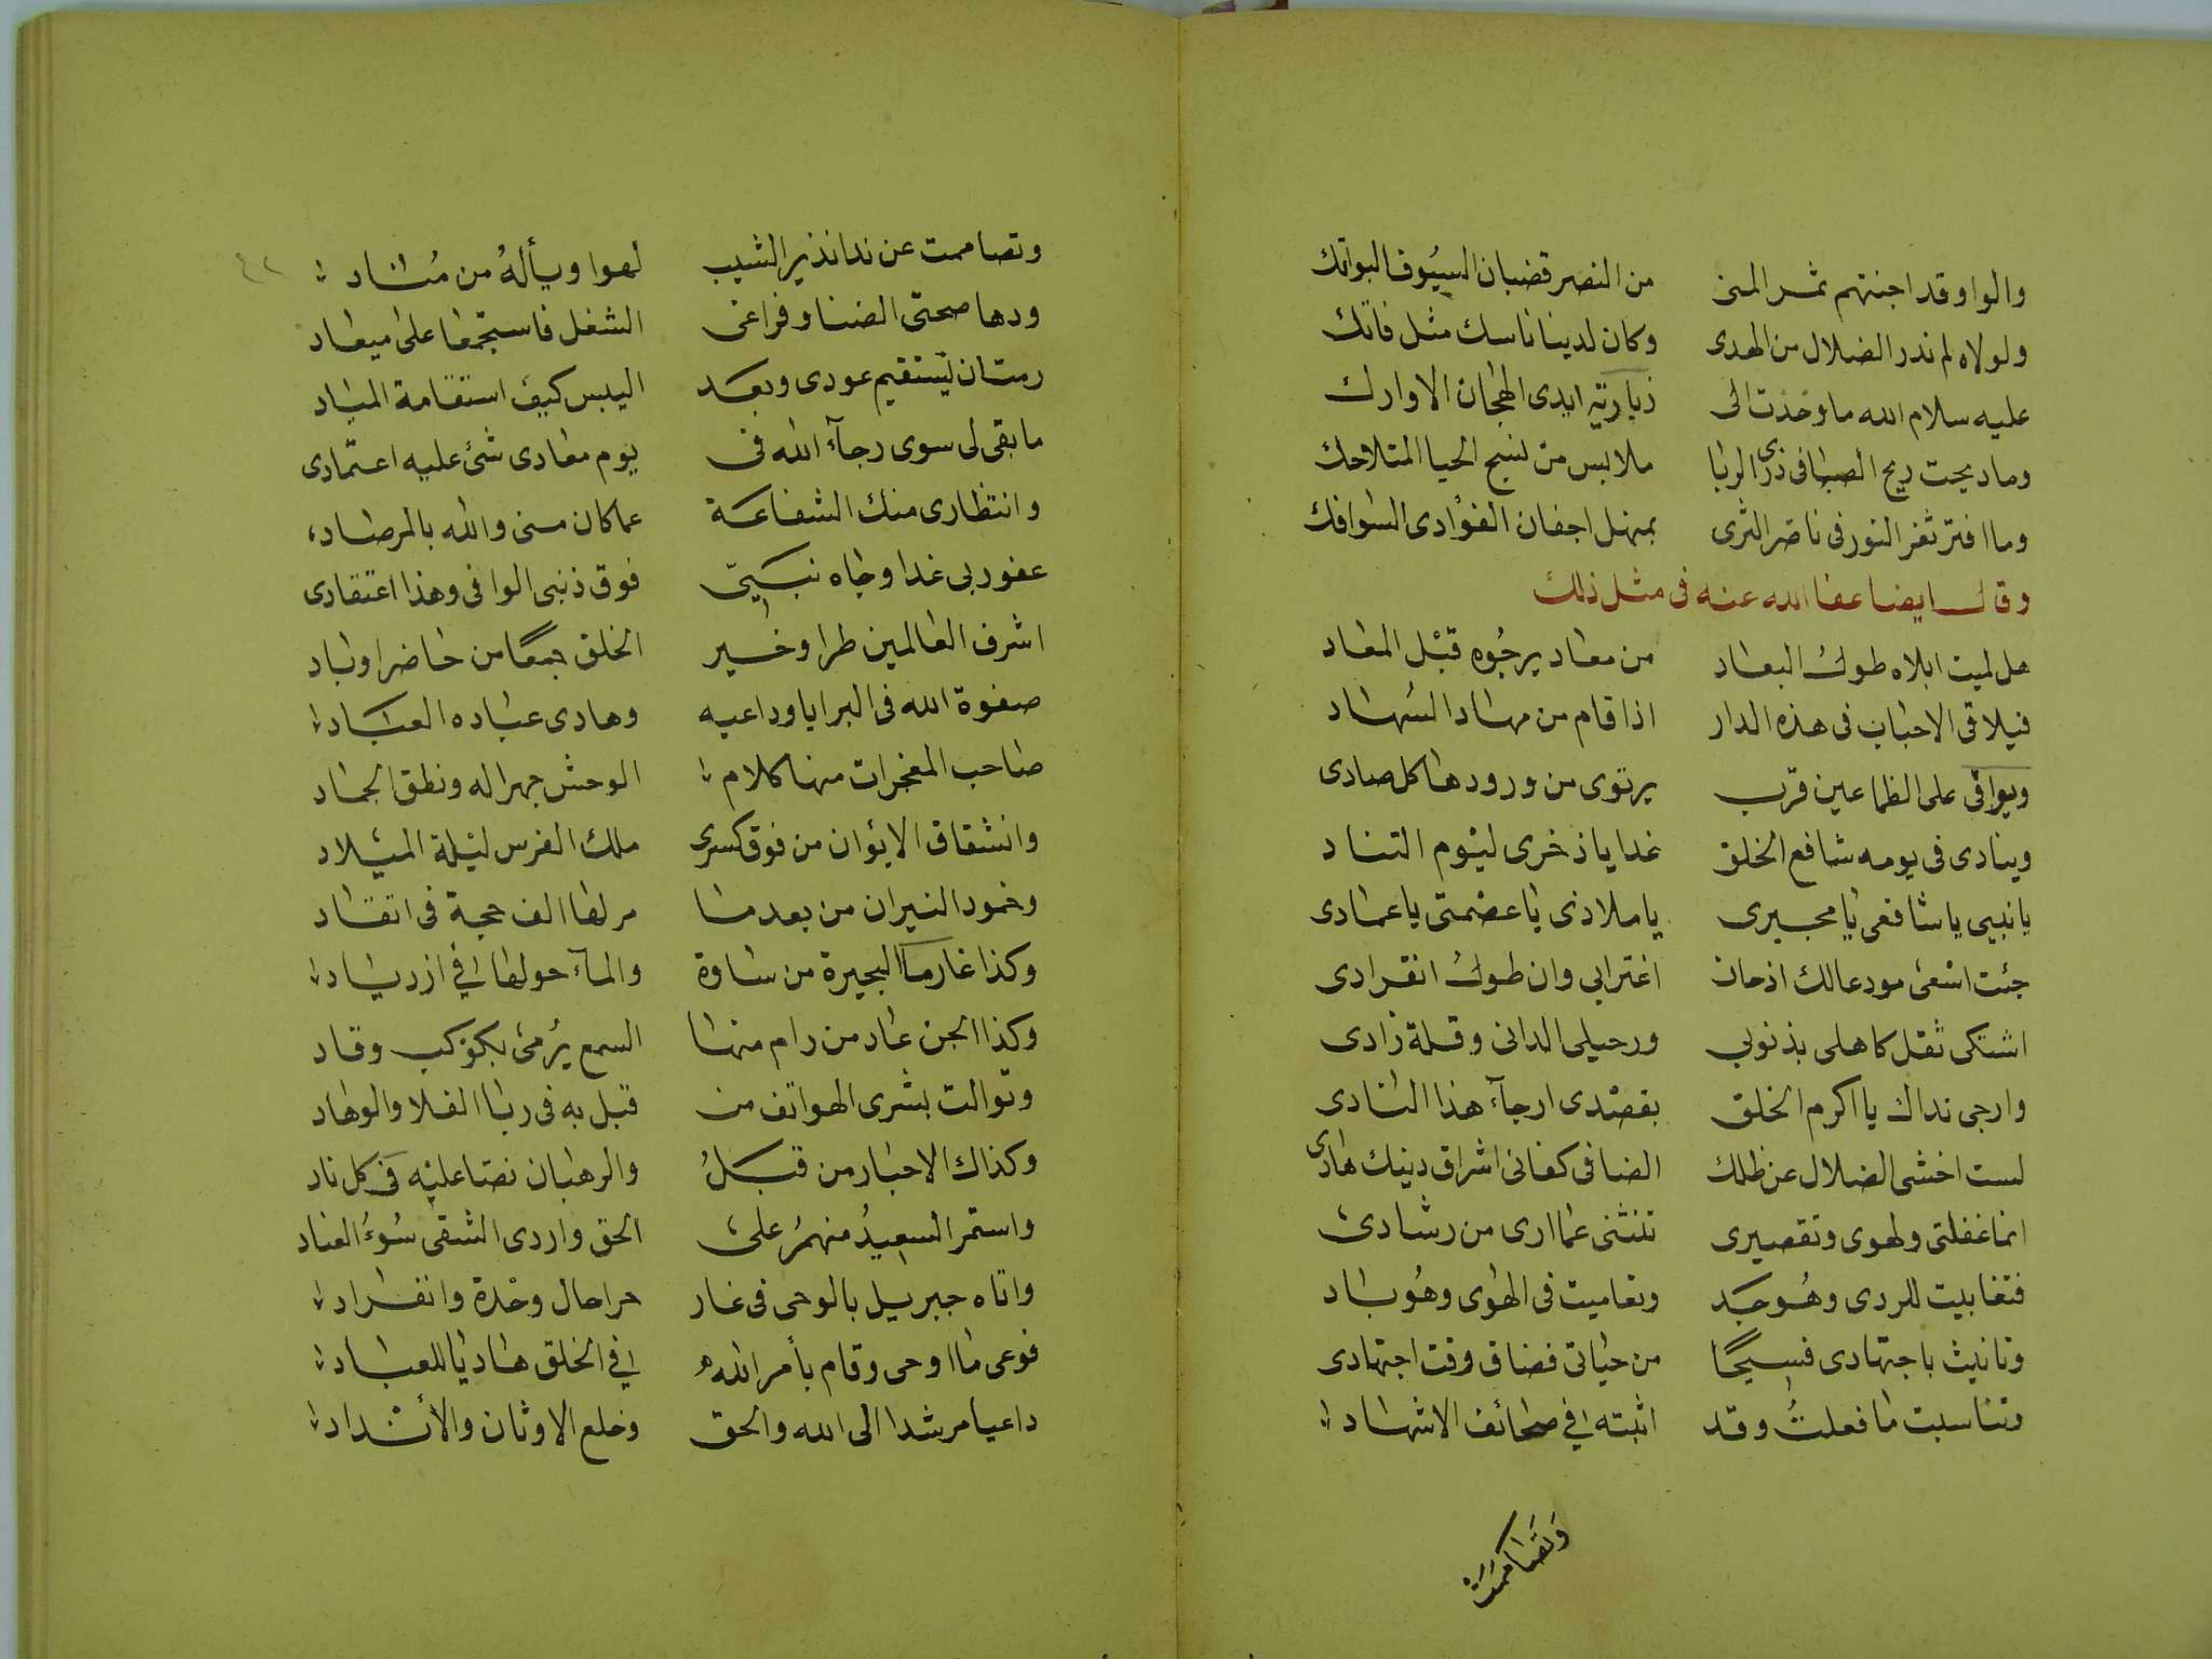 والوا وقد اجنتهم ثمر المنى من النصر قضبان السيوف البواتك
ولولاه لم ندر الضلال من الهدى وكان لدينا ناسك مثل فاتك
عليه سلام الله ما وخذت الى زيارته ايدى الهجان الاوارك
وما دبجت ريح الصبا فى ذرى الربا ملابس من نسج الحيا المتلاحك
وما افتر ثغر النور فى ناضر الثرى بمنهل اجفان الغوادى السوافك
وقال ايضا عفا الله عنه فى مثل ذلك
هل لميت ابلاه طول البعاد من معاد يرجوه قبل المعاد
فيلاقى الاحباب فى هذه الدار اذا قام من مهاد السهاد
ويوافى على الظما عين قرب يرتوى من ورودها كل صادى
وينادى فى يومه شافع الخلق غدا يا ذخرى ليوم التناد
يا نبيى يا شافعى يا مجيرى يا ملاذى يا عصمتى يا عمادى
جئت اسعى مودعا لك اذ حان اغترابى وان طول انفرادى
اشتكى ثقل كاهلى بذنوبى ورحيلى الدانى وقلة زادى
وارجى نداك يا اكرم الخلق بقصدى ارجآء هذا النادى
لست اخشى الضلال عن ظلك الضافى كفانى اشراق دينك هادى
انما غفلتى ولهوى وتقصيرى تنثنى عما ارى من رشادى
فتغابيت للردى وهو جد وتعاميت فى الهوى وهو باد
وتانيت باجتهادى فسيحا من حياتى فضاق وقت اجتهادى
وتناسيت ما فعلت وقد اثبته فى صحائف الاشهاد
وتصاممت
وتصاممت عن ندا نذير الشيب لهوا وياله من مناد
ودها صحتى الضنا وفراغى الشغل فاستجمعا على ميعاد
رمت ان يستقيم عودى وبعد اليبس كيف استقامة المياد
ما بقى لى سوى رجآء الله فى يوم معادى شئ عليه اعتمادى
وانتظارى منك الشفاعة عما كان منى والله بالمرصاد
عفو ربى غدا وجاه نبيى فوق ذنبى الوافى وهذا اعتقادى
اشرف العالمين طرا وخير الخلق جمعا من حاضر او باد
صفوة الله فى البرايا وداعيه وهادى عباده العباد
صاحب المعجزات منها كلام الوحش جهرا له ونطق الجماد
وانشقاق الايوان من فوق كسرى ملك الفرس ليلة الميلاد
وخمود النيران من بعد ما مر لها الف حجة فى اتقاد
وكذا غار ما البحيرة من ساوة والمآء حولها فى ازدياد
وكذا الجن عاد من رام منها السمع يرمى بكوكب وقاد
وتوالت بشرى الهواتف من قبل به فى ربا الفلا والوهاد
وكذاك الاحبار من قبل والرهبان نصا عليه فى كل ناد
واستمر السعيد منهم على الحق واردى الشقى سوء العناد
واتاه جبريل بالوحى فى غار حرا حال وحدة وانفراد
فوعى ما اوحى وقام بأمر الله فى الخلق هاديا للعباد
داعيا مرشدا الى الله والحق وخلع الاوثان والأنداد